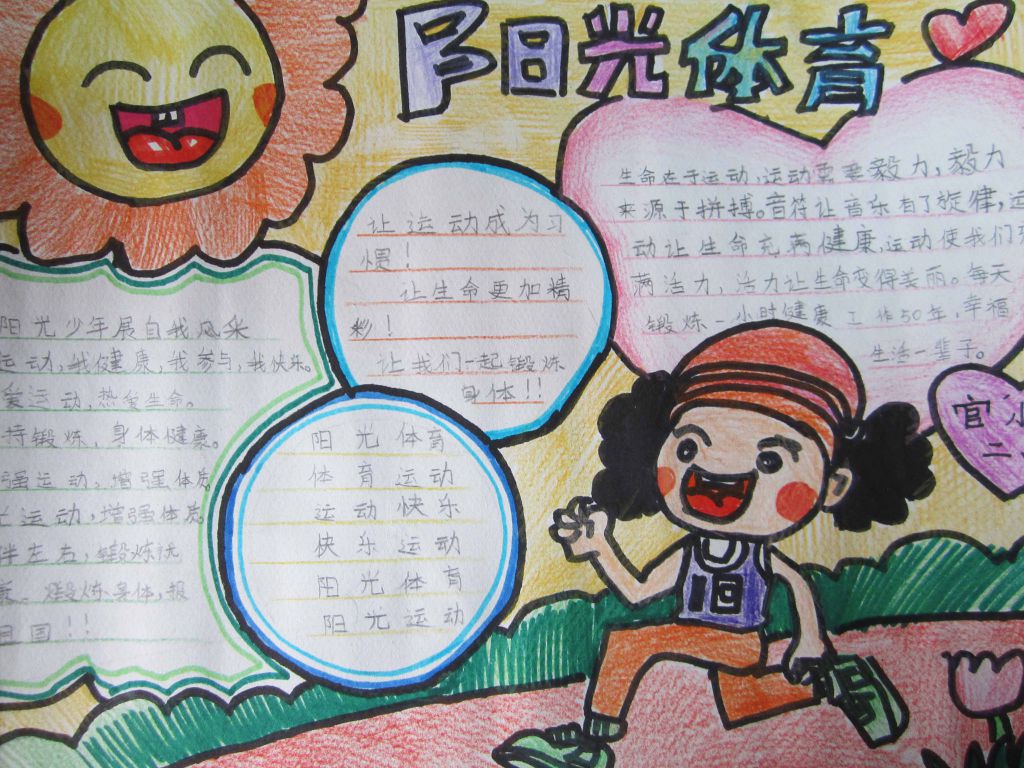 阳光体育
生命在于运动,运动需要毅力,毅力
来源于拼搏。音符让音乐有了旋律,运
动让生命充满健康,运动使我们充
满活力,活力让生命变得美丽。每天
锻炼一小时健康工作50年,幸福
生活一辈子。
让运动成为习
惯!
让生命更加精
彩!
让我们一起锻炼
身体!!
阳光少年展自我风采
运动,我健康,我参与,我快乐。
爱运动,热爱生命。
持锻炼,身体健康。
强运动,增强体质
运动,增强体质。
伴左右,锻炼
锻炼身体,报
国!!
阳光体育
体育运动
运动快乐
快乐运动
阳光体育
阳光运动
官
二
18